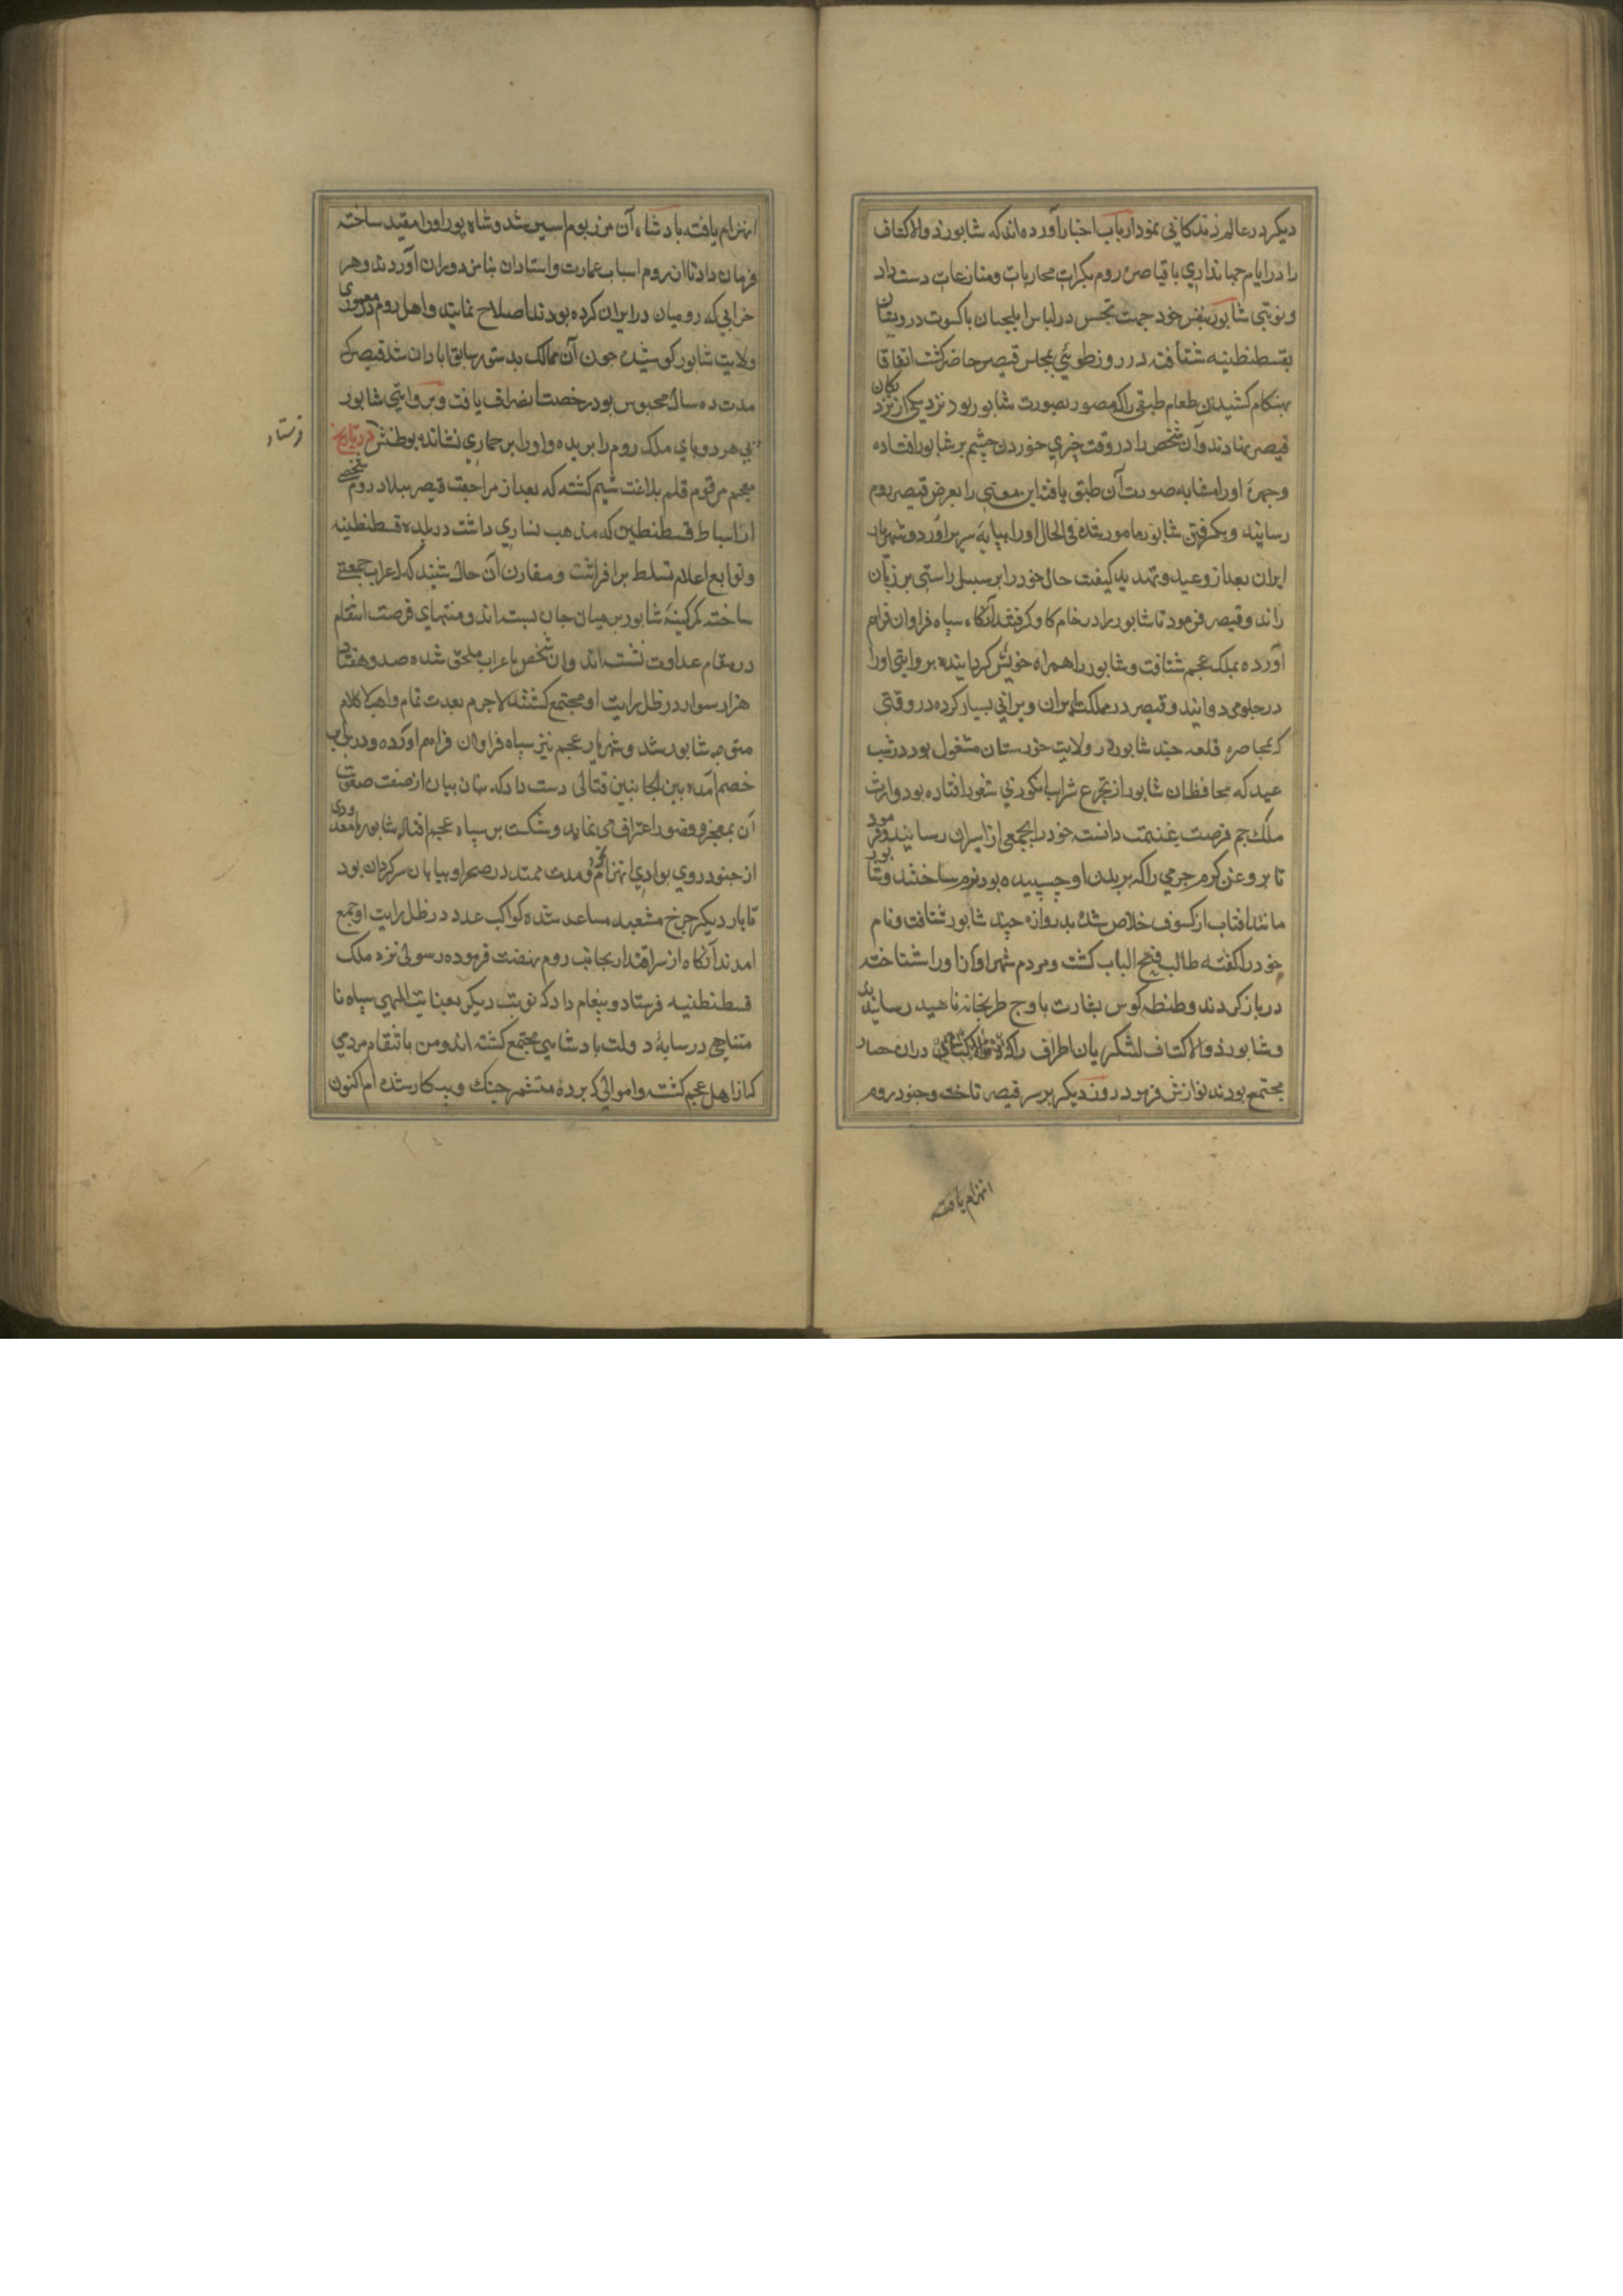 دیکر در عالم زندکانی نمود ارباب اخبار آورده اند که شابور ذوالاکتاف
را در ایام جهانداری با قیاصره روم بکرات محاربات و منازعات دست داد
و نوبتی شابور بنفس خود جهت تجسس در لباس ایلچیان با کسوت درویشان
بقسطنطنیه شتافت در روز طوئی بمجلس قیصر حاضر کشت اتفاقا
بهنکام کشیدن طعام طبقی را که مصور بصورت شابور بود نزد یکی از نزدیکان
قیصر نهادند و آن شخص را در وقت چیزی خوردن چشم بر شابور افتاده
و چهره او را مشابه صورت آن طبق یافت این معنی را بعرض قیصر روم
رسانید و بکرفتن شابور مامور شده فی الحال او را بپایه سریر آورد و شهریار
ایران بعد از وعید و تهدید کیفیت حال خود را بر سبیل راستی بر زبان
راند و قیصر فرمود تا شابور را در خام کاو کرفتند آنکاه سپاه فراوان فراهم
آورده بملک عجم شتافت و شابور را همراه خویش کردانیده بروایتی او را
در جلو می دوانید و قیصر در مملکت ایران ویرانی بسیار کرده در وقتی
که بمحاصره قلعه جند شابور در ولایت خوزستان مشغول بود در شب
عید که محافظان شابور از تجرع شراب انکوری شعور افتاده بود وارث
ملک جم فرصت غنیمت دانسته خود را بجمعی از اسیران رسانید و فرمود
تا بروغن کرم چرمی را که بر بدن او چسپیده بود نرم ساختند و شابور
مانند افتاب از کسوف خلاص شده بدروازه جند شابور شتافت و نام
خود را کفته طالب فتح الباب کشت و مردم شهر آواز او را شناخته
در باز کردند و طنطنه کوس بشارت باوج طربخانه ناهید رسانیدند
و شابور ذوالاکتاف لشکریان اطراف را که در آن حصار
مجتمع بودند نوازش فرمود روز دیکر بر سر قیصر تاخت و جنود روم
انهزام یافته
انهزام یافته بادشاه آن مرز بوم اسیر شد و شاه پور او را مقید ساخته
فرمان داد تا از روم اسباب عمارت و استادان بنا بزد و ایران آوردند و هر
خرابی که رومیان در ایران کرده بودند اصلاح نمایند و اهل روم در معموری
ولایت شابور کوشیده چون آن ممالک بدستور سابق ابادان شد قیصر که
مدت ده سال محبوس بود رخصت انصراف یافت و بروایتی شابور
پی هر دو پای ملک روم را بریده و او را بر حماری نشانده بوطنش در تاریخ
فرستاد
معجم مرقوم قلم بلاغت شیم کشته که بعد از مراجعت قیصر ببلاد روم شخصی
از اسباط قسطنطین که مذهب نصاری داشت در بلده قسطنطنیه
و توابع اعلام تسلط برافراشت و مقارن آن حال شنید که اعراب جمعیتی
ساخته کمر کینه شابور بر میان جان بسته اند و منتهای فرصت انتقام
در مقام عداوت نشسته اند و آن شخص باعراب ملحق شده صد و هفتاد
هزار سوار در ظل رایت او مجتمع کشتند لاجرم بعدت تمام و اهبة لا کلام
متوجه شابور شد و شهریار عجم نیز سپاه فراوان فراهم آورده و در برابر
خصم آمده بین الجانبین قتالی دست داد که بنان بیان از صفت صعوبت
آن بعجز و قصور اعتراف می نماید و شکست بر سپاه عجم افتاد شابور با معدودی
از جنود روی بوادی انهزام نهاده و مدت ممتد در صحرا و بیابان سرکردان بود
تا بار دیکر چرخ مشعبد مساعد شده کواکب عدد در ظل رایت او جمع
امدند آنکاه از سر اقتدار بجانب روم نهضت فرموده رسولی نزد ملک
قسطنطنیه فرستاد و پیغام داد که نوبت دیکر بعنایت الهی سپاه نا
متناهی در سایه دولت بادشاهی مجتمع کشته اند و من بانتقام مردمی
که از اهل عجم کشته و اموالی که برده متشمر جنک و پیکار شده ام اکنون